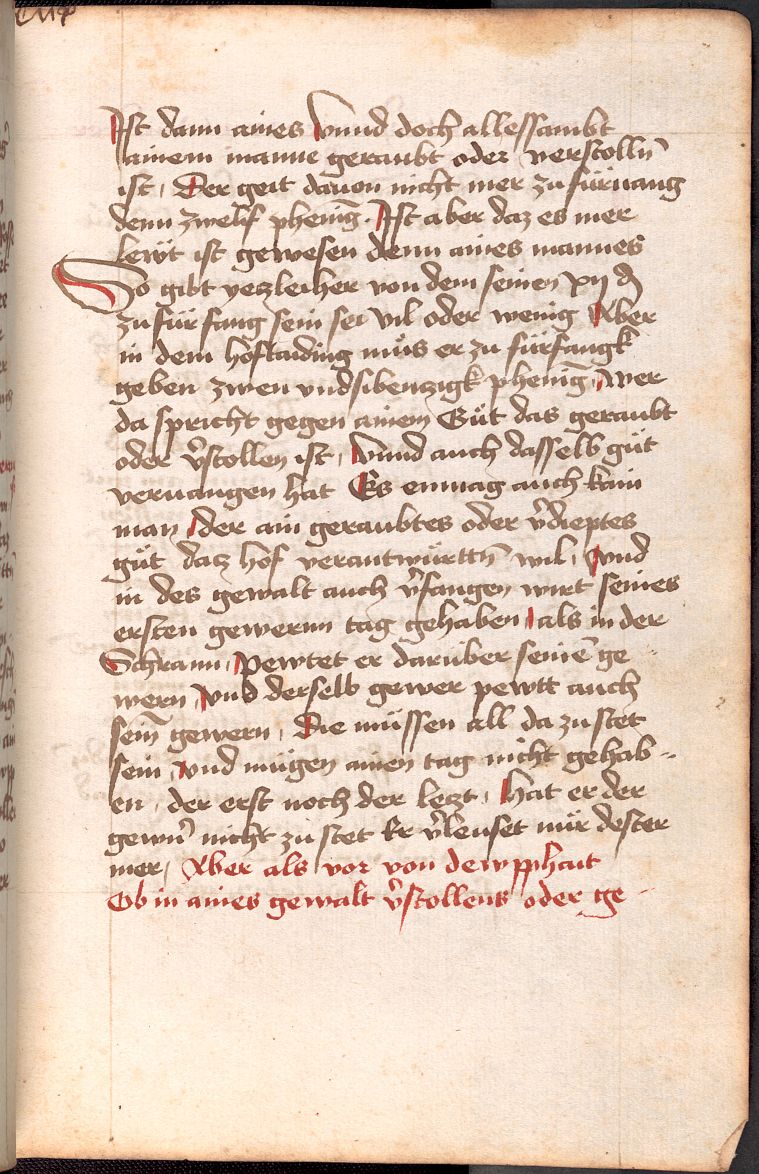 Ist dann aines Vnnd doch allessambt
ainem manne geraubt oder verstolln̄
ist, Der geit dauon nicht mer zu füruang
denn zwelif phenīg. Ist aber daz es mer
lewt ist gewesen denn aines mannes
So gibt yeczleicher von dem seinen xij ₰
zu fürfang sein sei vil oder wenig Aber
in dem hoftaiding müs er zu fürfangk
geben zwen vndsibenzigk phenīg, Wer
da spricht gegen ainem Güt das geraubt
oder v̄stollen ist, Vnnd auch dasselb güt
veruangen hat Es enmag auch kain
man der ain geraubtes oder v̄dieptes
güt daz hof verantwürttn̄ wil, Vnd
in des gewalt auch v̄fangen wirt seines
ersten gewernn tag gehaben als in der
Schrann, Pewtet er darüber seinē ge
wern, Vnd derselb gewer pewtt auch
sein̄ gewern, Die müssen all da zu stet
sein, vnd mügen ainen tag nicht gehab-
en, der erst noch der leczt, Hat er der
gewn̄ nicht zu stet Er v̄leuset nür dester
mer, Aber als vor von dewpphait
Ob in aines gewalt v̄stollens oder ge-